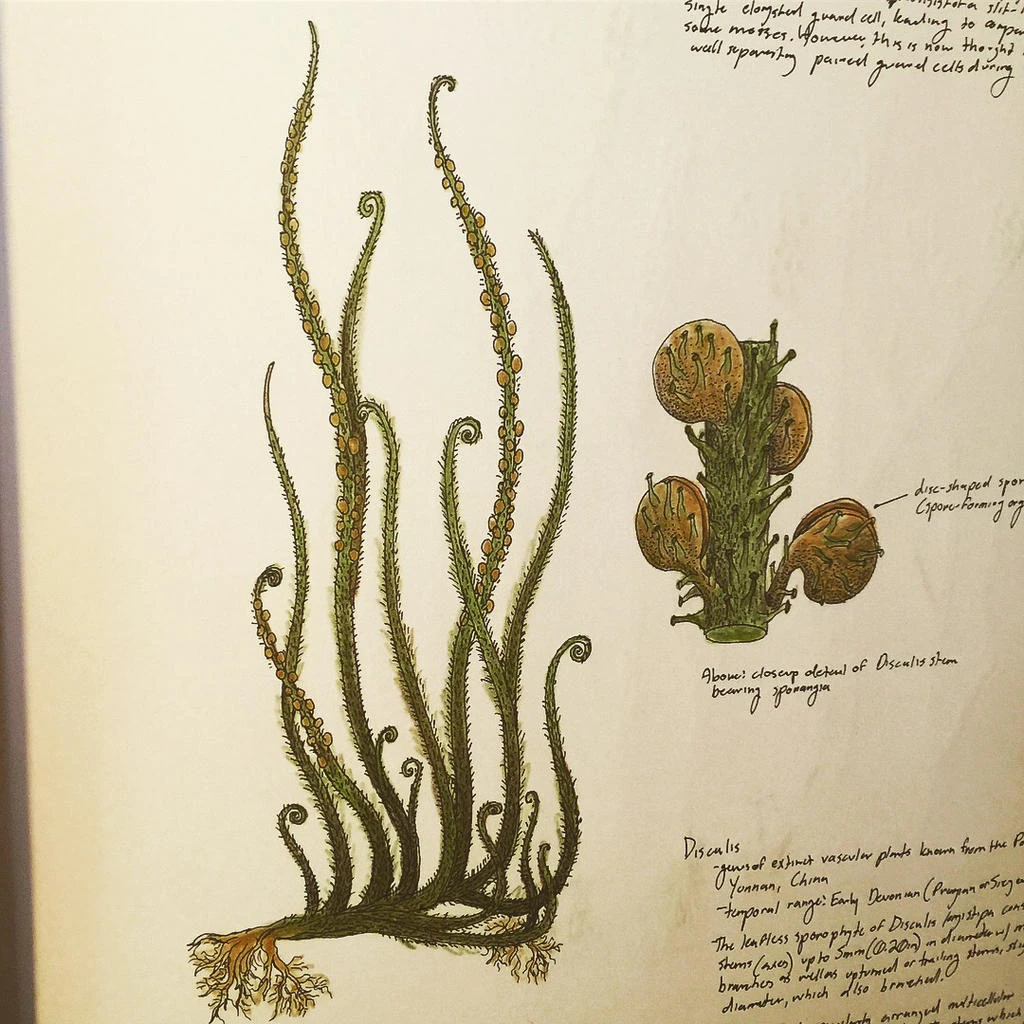 single elongated guard cell, leading to
some mosses. However, this is now thought
wall separating paired guard cells during
disc-shaped spor
(spore-forming org
Above: closeup detail of Disculis stem
bearing sporangia
Disculis
-genus of extinct vascular plants known from the Po
Yunnan, China
-temporal range: Early Devonian (Pragian or Sieg
The leafless sporophyte of Disculis longistipa cons
stems (axes) up to 5mm (0.20in) in diameter w/ m
branches as well as upturned or trailing stems,
diameter, which also branched.
arranged multicellular
which